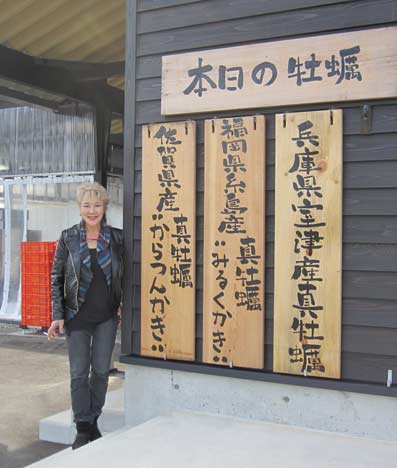 本日の牡蠣
兵庫県室津産真牡蠣
福岡県糸島産
真牡蠣
"みるくかき"
佐賀県産
真牡蠣
"からつんかき"